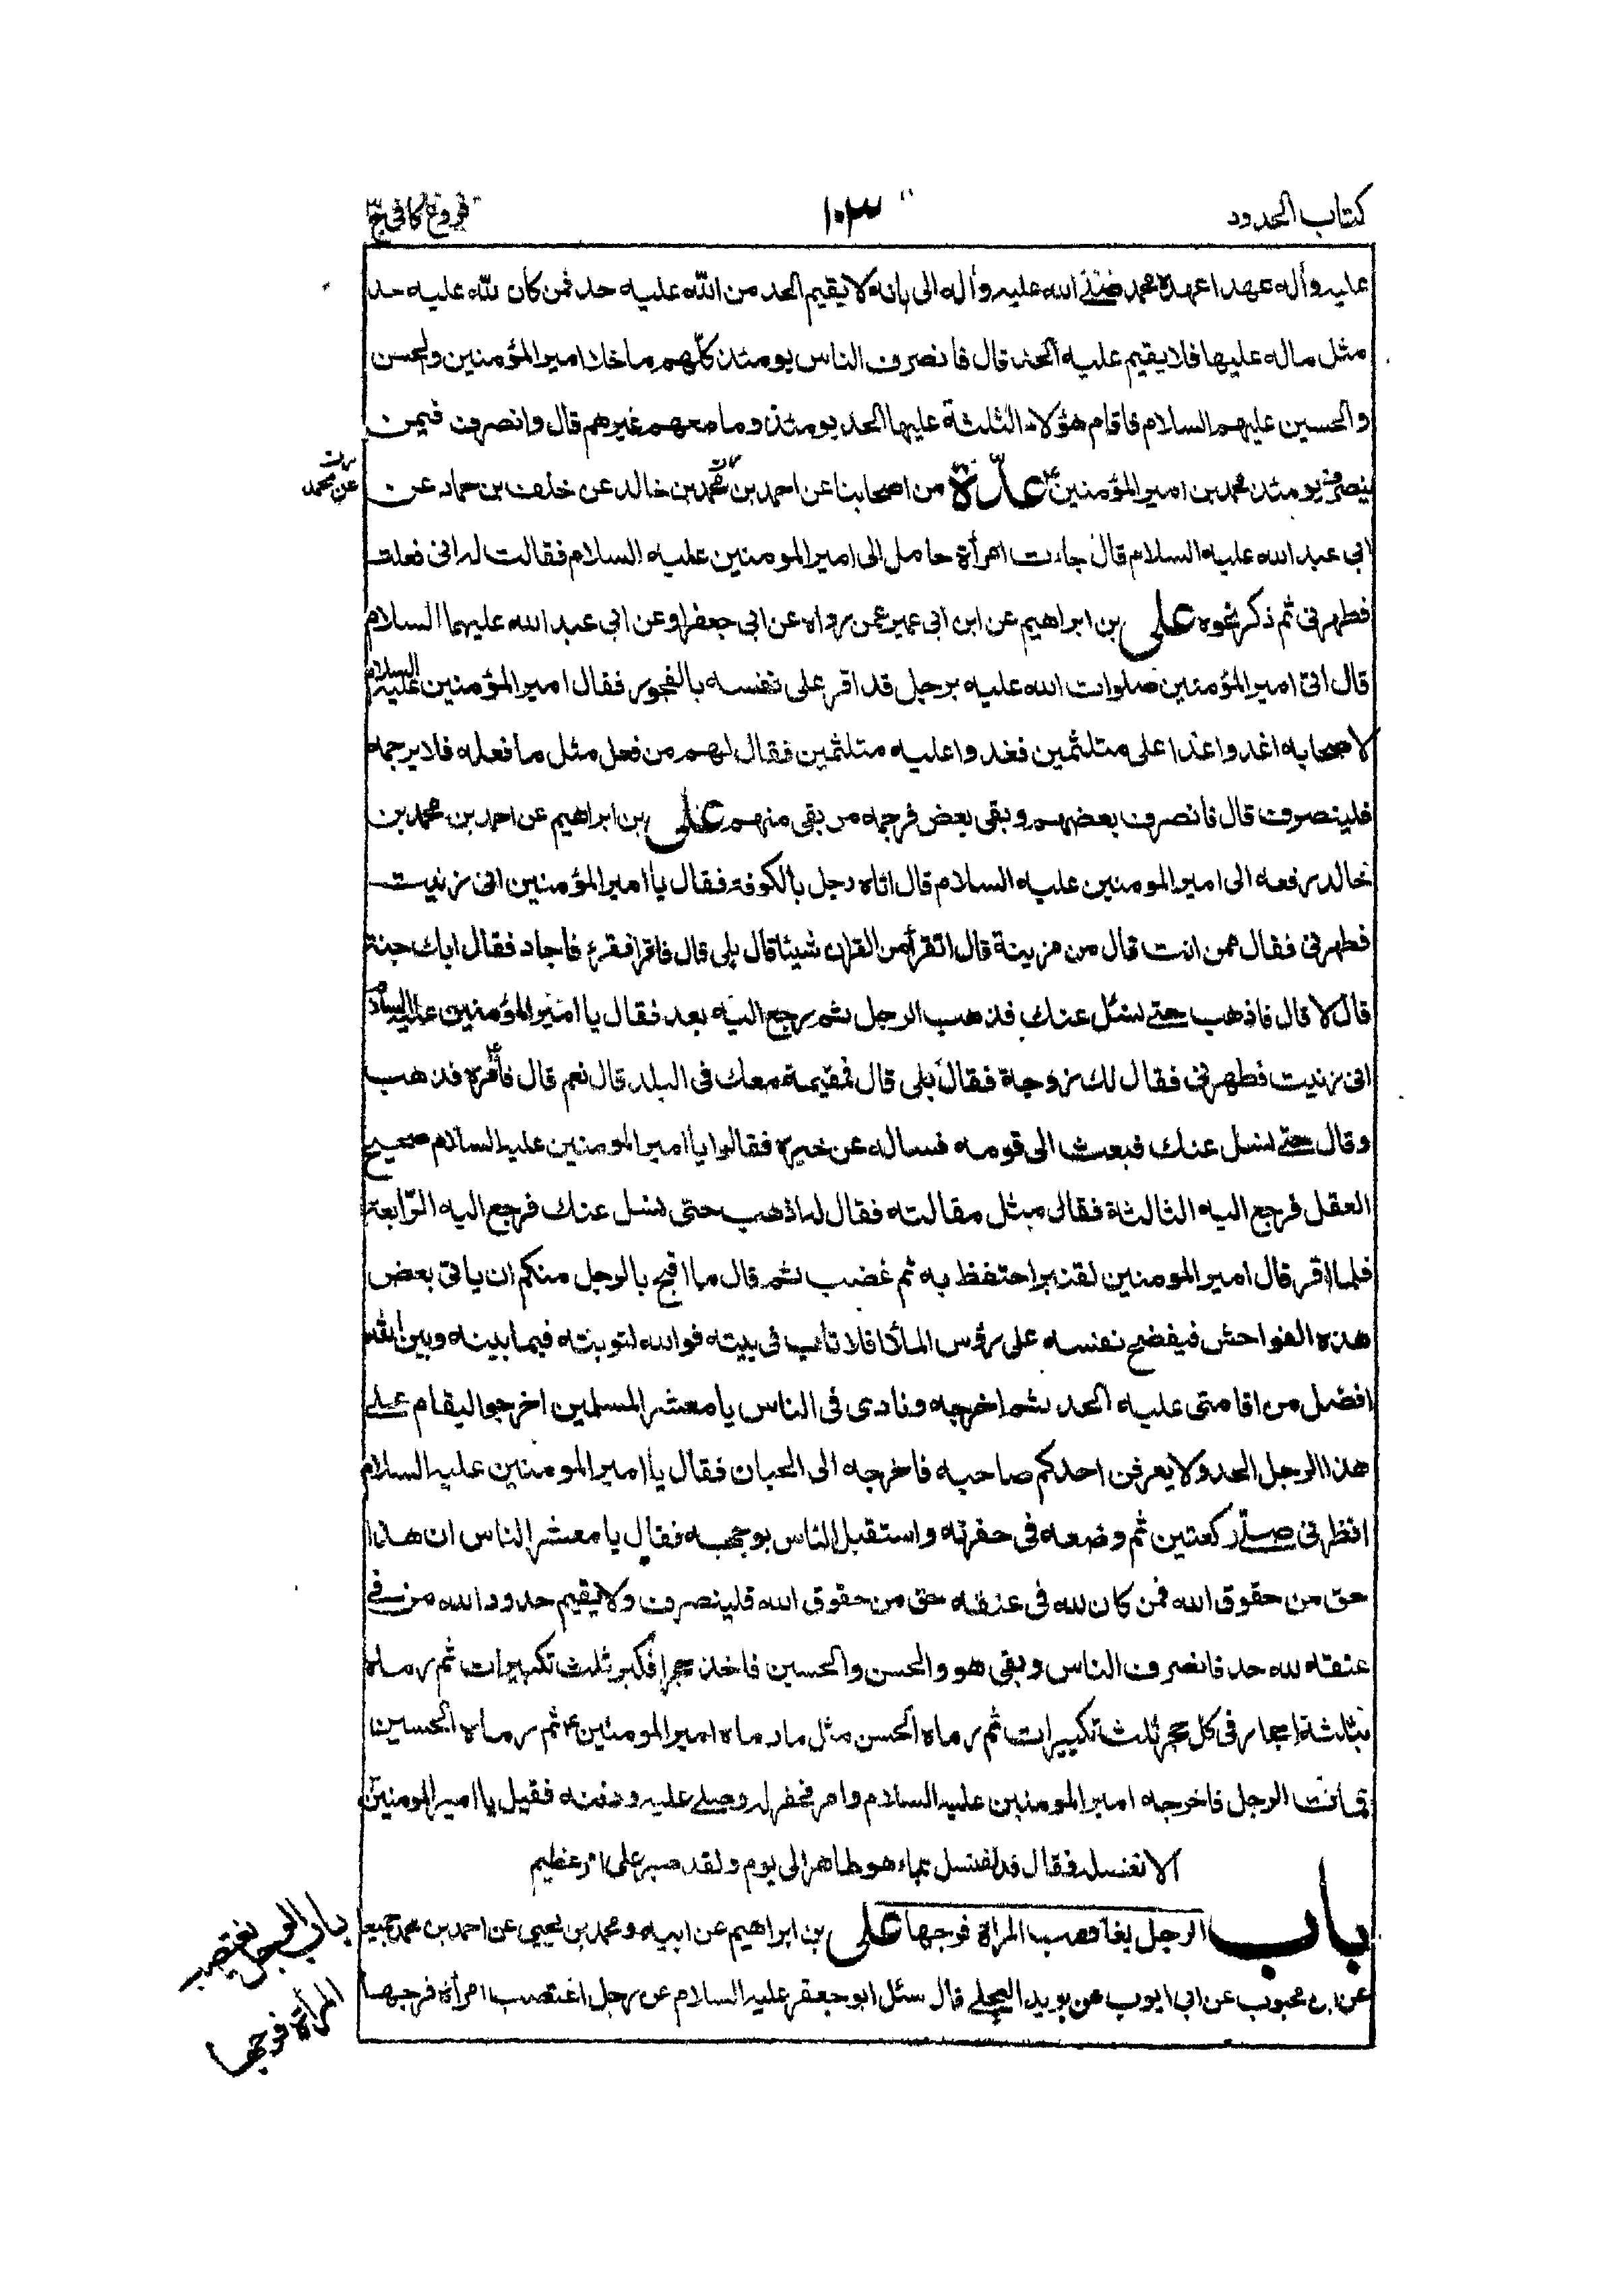 كتاب الحدود ١٠٣ فروع كافى ج٣
عليه وأله عهدا عهده محمد صلى الله عليه وأله الى بانه لا يقيم الحد من الله عليه حد فمن كان لله عليه حد
مثل ماله عليها فلا يقيم عليه الحد قال فانصرف الناس يومئذ كلهم ما خلا امير المؤمنين والحسن
والحسين عليهم السلام فاقام هؤلاء الثلثة عليها الحد يومئذ وما معهم غيرهم قال وانصرف فيمن
ينصرف يومئذ محمد بن امير المؤمنين ع عدّة من اصحابنا عن احمد بن محمد بن خالد عن خلف بن حماد عن
عن محمد
ابى عبد الله عليه السلام قال جاءت امرأة حامل الى امير المومنين عليه السلام فقالت له انى فعلت
فطهرنى ثم ذكر نحوه على بن ابراهيم عن ابن ابى عمير عمن رواه عن ابى جعفر او عن ابى عبد الله عليهما السلام
قال اتى امير المؤمنين صلوات الله عليه برجل قد اقر على نفسه بالفجور فقال امير المؤمنين عليه السلام
لاصحابه اغدوا غدا على متلثمين فغدوا عليه متلثمين فقال لهم من فعل مثل ما فعله فلا يرجمه
فلينصرف قال فانصرف بعضهم وبقى بعض فرجمه من بقى منهم على بن ابراهيم عن احمد بن محمد بن
خالد رفعه الى امير المومنين عليه السلام قال اتاه رجل بالكوفة فقال يا امير المؤمنين انى زنيت
فطهرنى فقال ممن انت قال من مزينة قال اتقرأ من القران شيئا قال بلى قال فاقرأ فقرء فاجاد فقال ابك جنة
قال لا قال فاذهب حتى نسئل عنك فذهب الرجل ثم رجع اليه بعد فقال يا امير المؤمنين عليه السلام
انى زنيت فطهرنى فقال لك زوجة فقال بلى قال فمقيمة معك فى البلد قال نعم قال فأمره فذهب
وقال حتى نسئل عنك فبعث الى قومه فساله عن خبره فقالوا يا امير المومنين عليه السلام صحيح
العقل فرجع اليه الثالثة فقال مثل مقالته فقال له اذهب حتى نسئل عنك فرجع اليه الرّابعة
فلما اقر قال امير المومنين لقنبر احتفظ به ثم غضب ثم قال ما اقبح بالرجل منكم ان ياتى بعض
هذه الفواحش فيفضح نفسه على رؤس الملأ افلا تاب فى بيته فوالله لتوبته فيما بينه وبين الله
افضل من اقامتى عليه الحد ثم اخرجه ونادى فى الناس يا معشر المسلمين اخرجوا ليقام على
هذا الرجل الحد ولا يعرفن احدكم صاحبه فاخرجه الى الجبان فقال يا امير المومنين عليه السلام
انظرنى صلّى ركعتين ثم وضعه فى حفرته واستقبل الناس بوجهه فقال يا معشر الناس ان هذا
حق من حقوق الله فمن كان لله فى عنقه حق من حقوق الله فلينصرف ولا يقيم حدود الله من فى
عنقه لله حد فانصرف الناس وبقى هو والحسن والحسين فاخذ حجرا فكبر ثلث تكبيرات ثم رماه
بثلثة احجار فى كل حجر ثلث تكبيرات ثم رماه الحسن مثل ما رماه امير المومنين ع ثم رماه الحسين
فمات الرجل فاخرجه امير المومنين عليه السلام وامر فحفر له وصلى عليه ودفنه فقيل يا امير المومنين
الا تغسله فقال قد اغتسل بماء هو طاهر الى يوم ولقد صبر على امر عظيم
باب الرجل يغتصب المراة فرجها على بن ابراهيم عن ابيه ومحمد بن يحيى عن احمد بن محمد جميعا
باب الرجل يغتصب المرأة فرجها
عن ابن محبوب عن ابى ايوب عن بريد العجلى قال سئل ابو جعفر عليه السلام عن رجل اغتصب امرأة فرجها